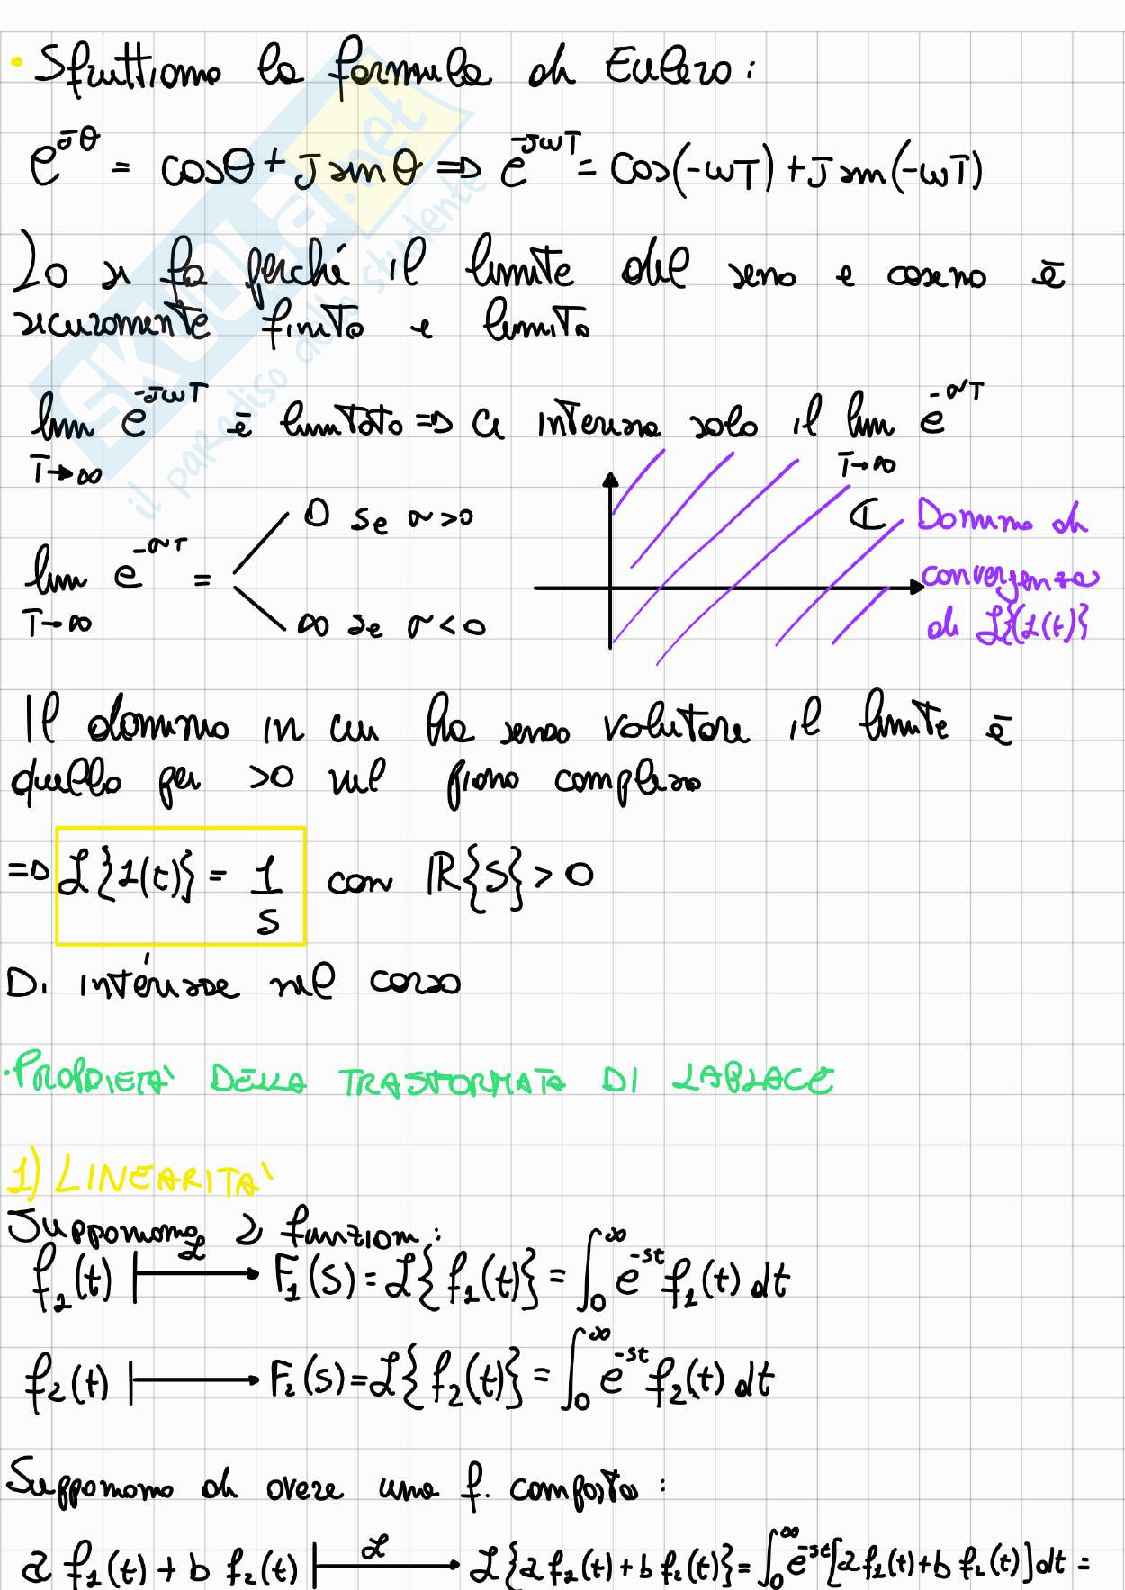 • Sfruttiamo la formula di Eulero:
e^{Jθ} = cosθ + J sinθ => e^{-JωT} = Cos(-ωT) + J sin(-ωT)
Lo si fa perché il limite del seno e coseno è
sicuramente finito e limita
lim e^{-JωT} è limitato => Ci interessa solo il lim e^{-σT}
T→∞ T→∞
lim e^{-σT} =
T→∞
0 se σ>0
∞ se σ<0
C Dominio di
convergenza
di L{1(t)}
Il dominio in cui ha senso valutare il limite è
quello per >0 nel piano complesso
=> L{1(t)} = 1/s con R{S} > 0
Di interesse nel corso
• PROPRIETA' DELLA TRASFORMATA DI LAPLACE
1) LINEARITA'
Supponiamo 2 funzioni:
f_1(t) |—L→ F_1(S) = L{f_1(t)} = ∫_0^∞ e^{-st} f_1(t) dt
f_2(t) |—→ F_2(S) = L{f_2(t)} = ∫_0^∞ e^{-st} f_2(t) dt
Supponiamo di avere una f. composta:
a f_1(t) + b f_2(t) |—L→ L{a f_1(t) + b f_2(t)} = ∫_0^∞ e^{-st}[a f_1(t) + b f_2(t)] dt =
SKUOLA.net
il paradiso dello studente